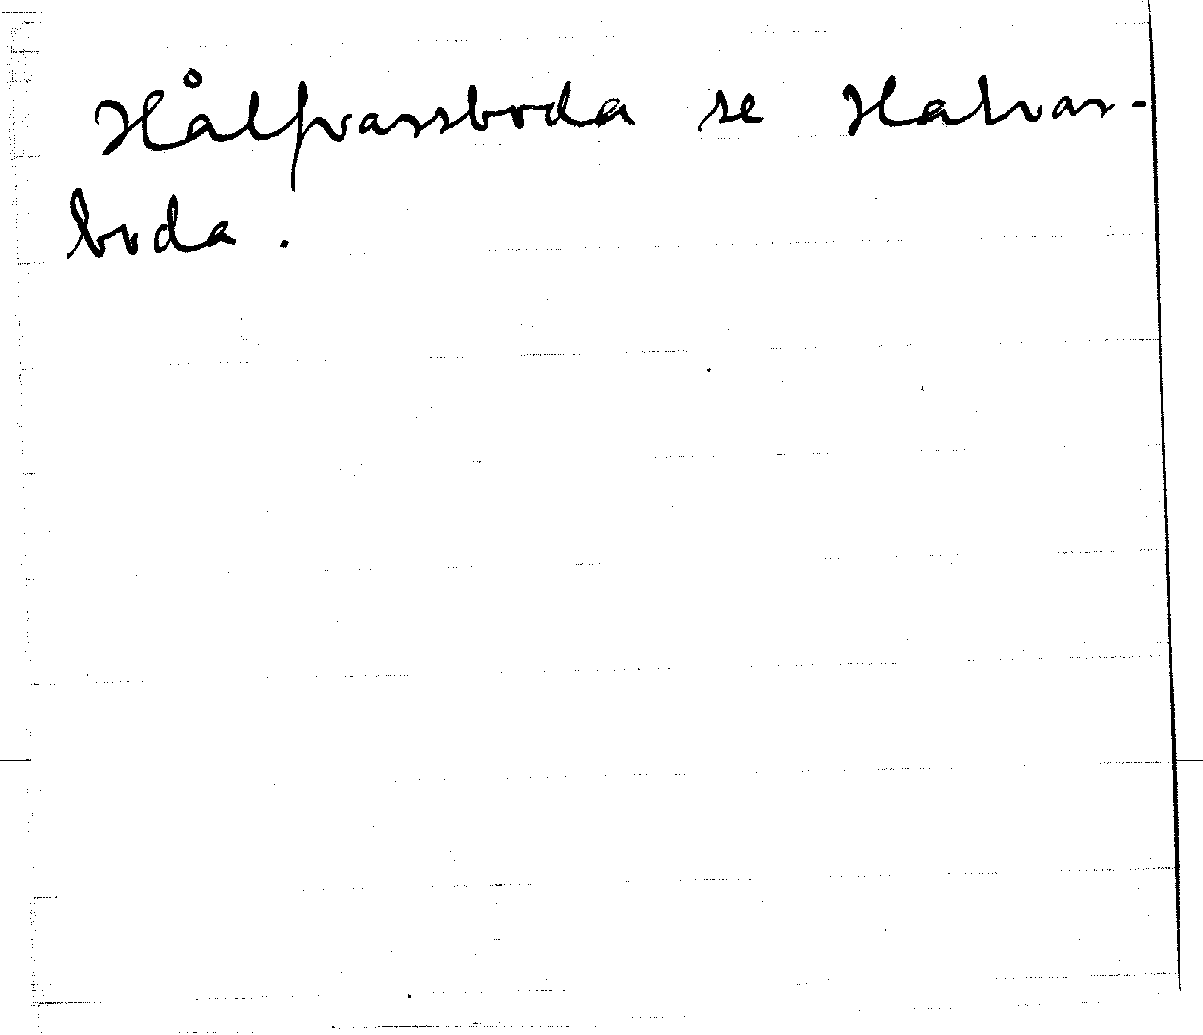 Hålfvarssboda se Halvar-
boda.